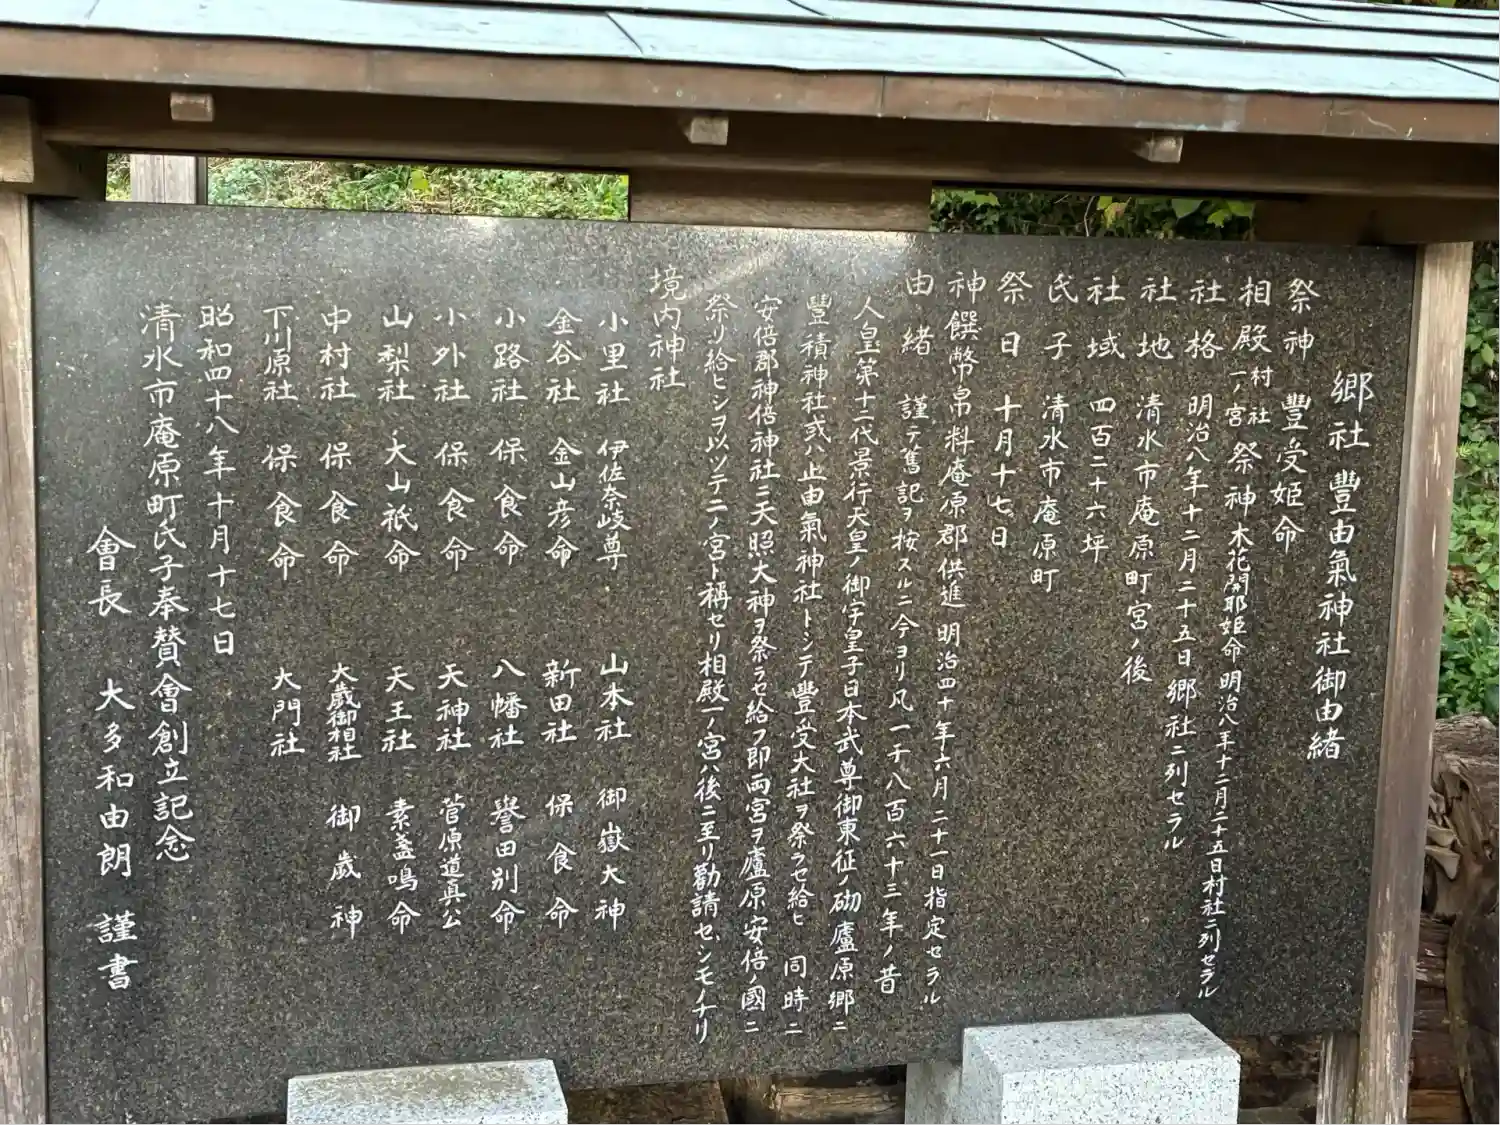 郷社 豐由氣神社御由緒
祭神 豐受姫命
相殿 村社 一ノ宮 祭神木花開耶姫命 明治八年十二月二十五日村社ニ列セラル
社格 明治八年十二月二十五日郷社ニ列セラル
社地 清水市庵原町宮ノ後
社域 四百二十六坪
氏子 清水市庵原町
祭日 十月十七日
神饌幣帛料庵原郡供進 明治四十年六月二十一日指定セラル
由緒 謹テ舊記ヲ按スルニ今ヨリ凡一千八百六十三年ノ昔
人皇第十二代景行天皇ノ御宇皇子日本武尊御東征ノ砌廬原郷ニ
豐積神社或ハ止由氣神社トシテ豐受大社ヲ祭ラセ給ヒ 同時ニ
安倍郡神倍神社ニ天照大神ヲ祭ラセ給フ即両宮ヲ廬原安倍ノ國ニ
祭リ給ヒシヲ以ツテ二ノ宮ト稱セリ相殿一ノ宮ハ後ニ至リ勸請セシモノナリ
境内神社
小里社 伊佐奈岐尊 山本社 御嶽大神
金谷社 金山彦命 新田社 保食命
小路社 保食命 八幡社 譽田別命
小外社 保食命 天神社 菅原道真公
山梨社 大山祇命 天王社 素盞鳴命
中村社 保食命 大歳御祖社 御歳神
下川原社 保食命 大門社
昭和四十八年十月十七日
清水市庵原町氏子奉賛會創立記念
會長 大多和由朗 謹書